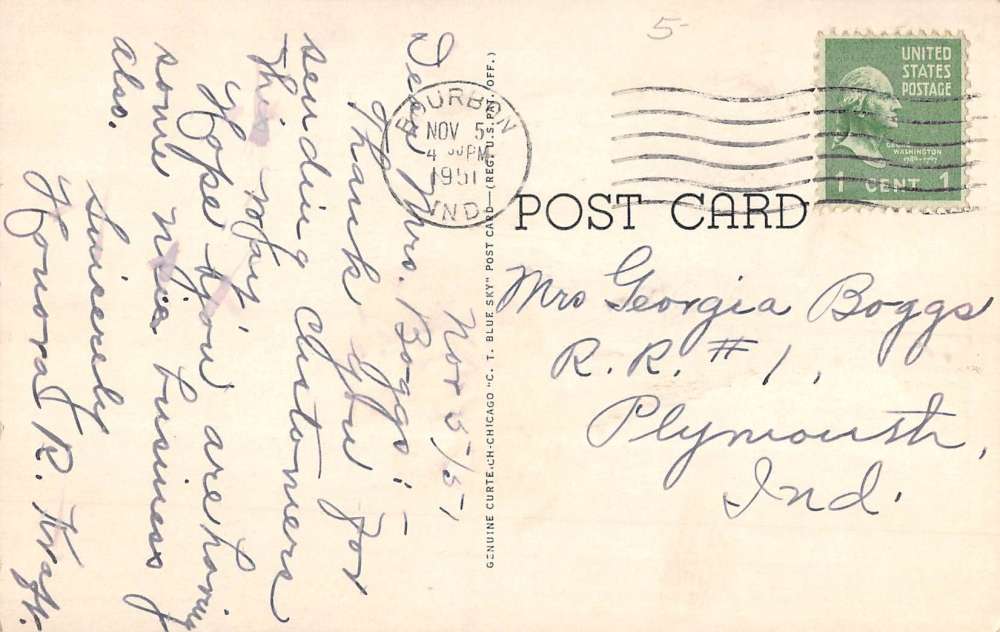 Nov 5/51
Dear Mrs. Boggs:-
Thank you for
sending Customers
this way
Hope you are having
some nice business
also.
Sincerely
Honora R. Kraft.
GENUINE CURTEICH-CHICAGO "C. T. BLUE SKY" POST CARD—(REG. U.S. PAT. OFF.)
5-
BOURBON
NOV 5
4 PM
1951
IND.
UNITED
STATES
POSTAGE
GEORGE
WASHINGTON
1789-1797
1 CENT 1
POST CARD
Mrs Georgia Boggs
R. R. #1,
Plymouth,
Ind.